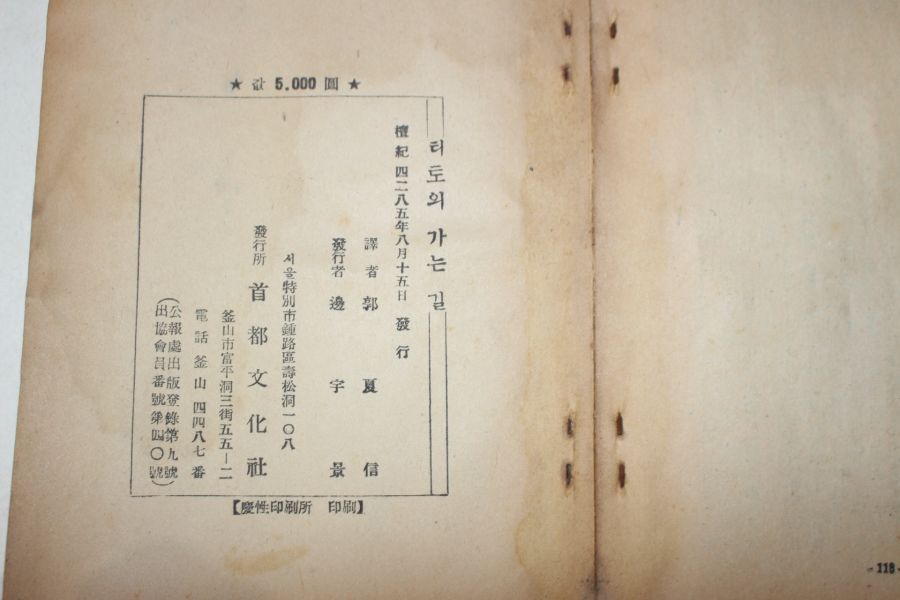 ★ 값 5.000 圓 ★
티토의 가는 길
檀紀四二八五年八月十五日 發行
譯者 郭夏信
發行者 邊宇景
서울特別市鍾路區壽松洞一〇八
發行所 首都文化社
釜山市富平洞三街五五—二
電話 釜山 四四八七番
(公報處出版登錄第九號
出協會員番號第四〇號)
【慶性印刷所 印刷】
- 118 -